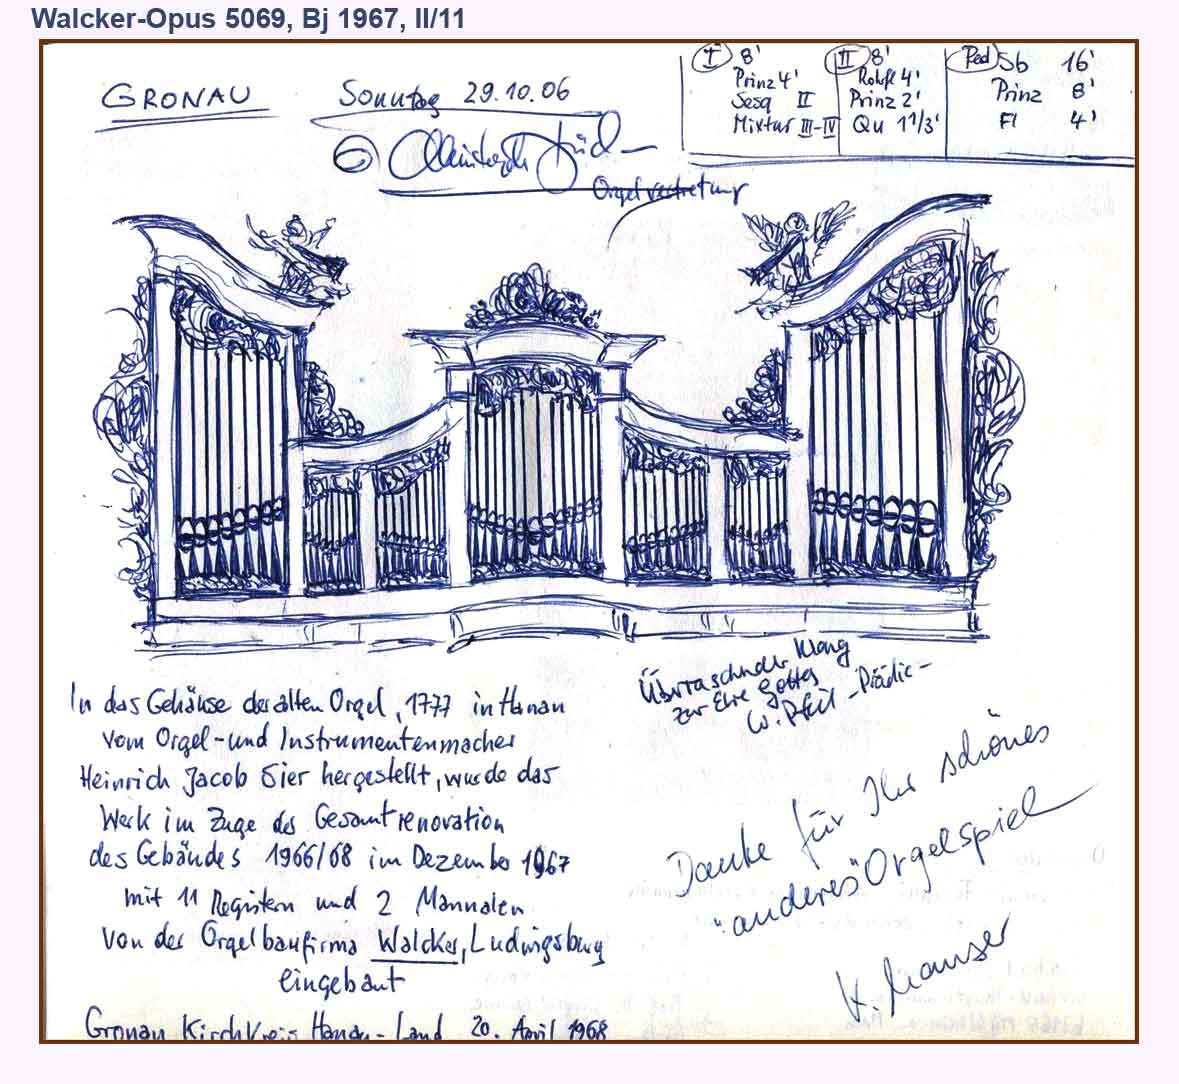 Walcker-Opus 5069, Bj 1967, II/11
GRONAU
Sonntag 29.10.06
Orgelvertretung
I 8'
Prinz 4'
Sesq II
Mixtur III-IV
II 8'
Rohrfl 4'
Prinz 2'
Qu 1 1/3'
Ped Sb 16'
Prinz 8'
Fl 4'
In das Gehäuse der alten Orgel, 1777 in Hanau
vom Orgel- und Instrumentenmacher
Heinrich Jacob Sier hergestellt, wurde das
Werk im Zuge des Gesamtrenovation
des Gebäudes 1966/68 im Dezember 1967
mit 11 Registern und 2 Manualen
von der Orgelbaufirma Walcker, Ludwigsburg
eingebaut
Gronau Kirchkreis Hanau-Land 20. April 1968
Überraschender Klang
zur Ehre Gottes
W. Pfeil -Prädic-
Danke für Ihr schönes
"anderes" Orgelspiel
K.